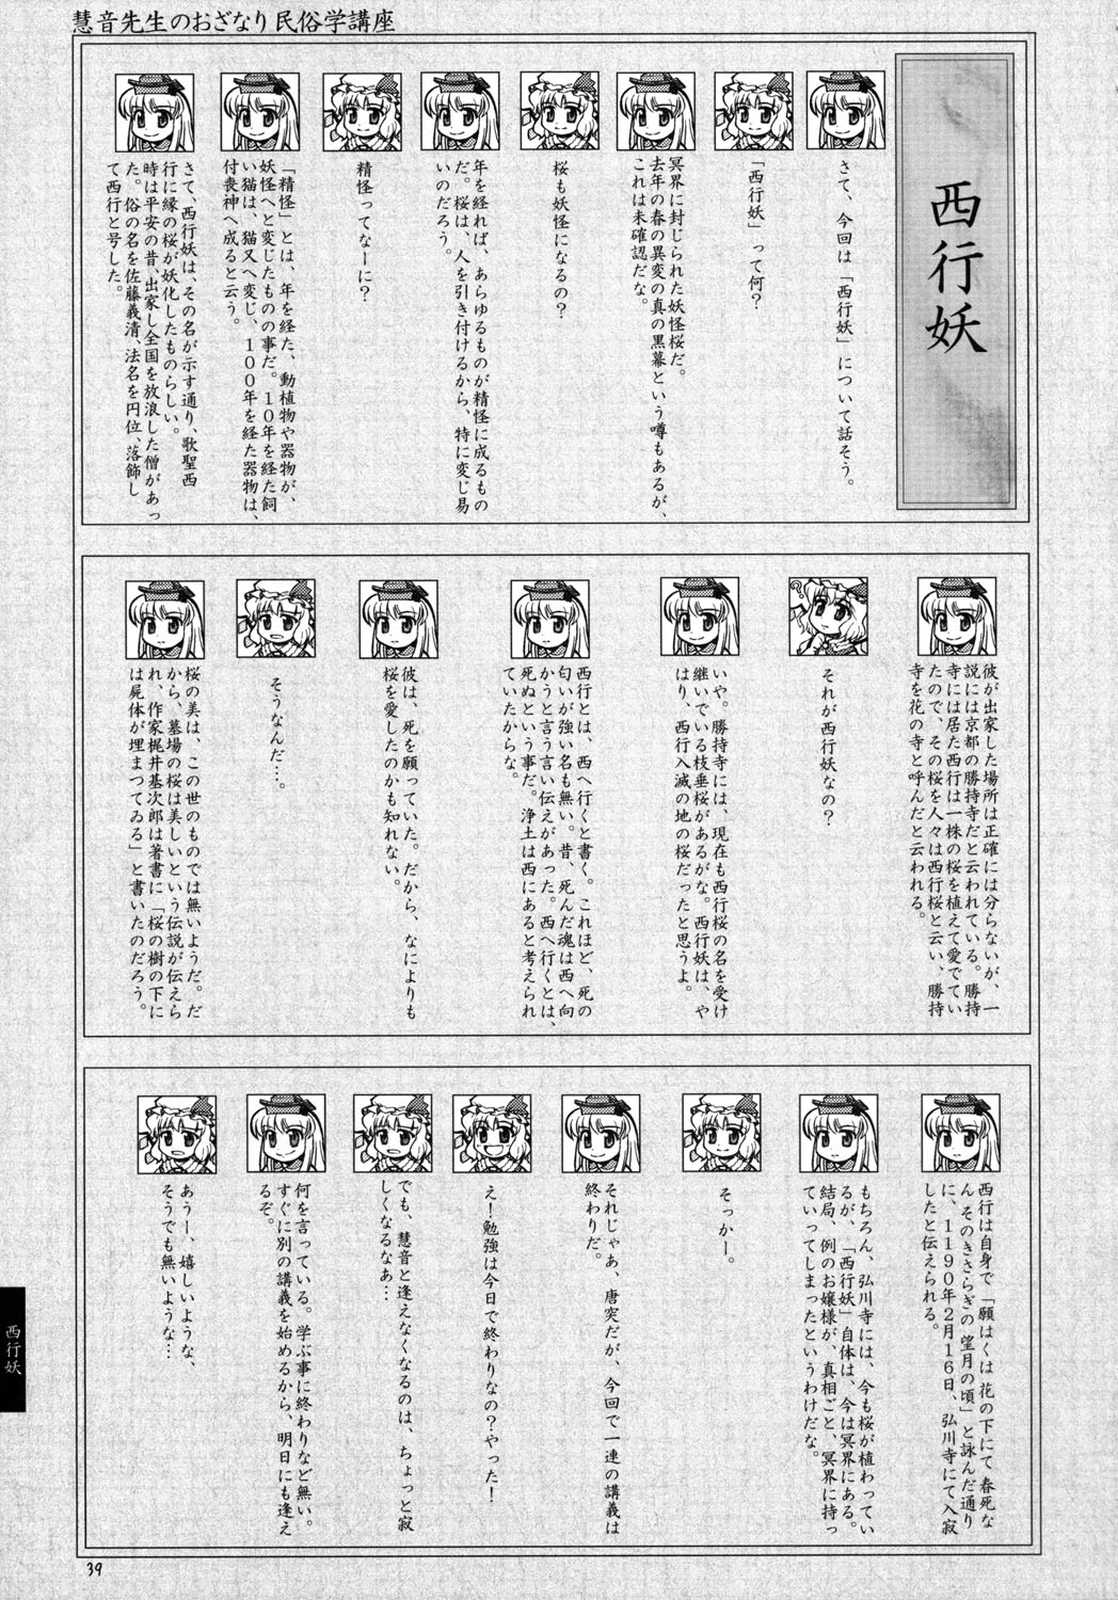 慧音先生のおざなり民俗学講座
西行妖
さて、今回は「西行妖」について話そう。
「西行妖」って何?
冥界に封じられた妖怪桜だ。
去年の春の異変の真の黒幕という噂もあるが、
これは未確認だな。
桜も妖怪になるの?
年を経れば、あらゆるものが精怪に成るもの
だ。桜は、人を引き付けるから、特に変じ易
いのだろう。
精怪ってなーに?
「精怪」とは、年を経た、動植物や器物が、
妖怪へと変じたものの事だ。10年を経た飼
い猫は、猫又へ変じ、100年を経た器物は、
付喪神へ成ると云う。
さて、西行妖は、その名が示す通り、歌聖西
行に縁の桜が妖化したものらしい。
時は平安の昔、出家し全国を放浪した僧があっ
た。俗の名を佐藤義清、法名を円位、落飾し
て西行と号した。
彼が出家した場所は正確には分らないが、一
説には京都の勝持寺だと云われている。勝持
寺には居た西行は一株の桜を植えて愛でてい
たので、その桜を人々は西行桜と云い、勝持
寺を花の寺と呼んだと云われる。
それが西行妖なの?
いや。勝持寺には、現在も西行桜の名を受け
継いでいる枝垂桜があるがな。西行妖は、や
はり、西行入滅の地の桜だったと思うよ。
西行とは、西へ行くと書く。これほど、死の
匂いが強い名も無い。昔、死んだ魂は西へ向
かうと言う言い伝えがあった。西へ行くとは、
死ぬという事だ。浄土は西にあると考えられ
ていたからな。
彼は、死を願っていた。だから、なによりも
桜を愛したのかも知れない。
そうなんだ…。
桜の美は、この世のものでは無いようだ。だ
から、墓場の桜は美しいという伝説が伝えら
れ、作家梶井基次郎は著書に「桜の樹の下に
は屍体が埋まつてゐる」と書いたのだろう。
西行は自身で「願はくは 花の下にて 春死な
ん そのきさらぎの 望月の頃」と詠んだ通り
に、1190年2月16日、弘川寺にて入寂
したと伝えられる。
もちろん、弘川寺には、今も桜が植わってい
るが、「西行妖」自体は、今は冥界にある。
結局、例のお嬢様が、真相ごと、冥界に持っ
ていってしまったというわけだな。
そっかー。
それじゃあ、唐突だが、今回で一連の講義は
終わりだ。
え!勉強は今日で終わりなの?やった!
でも、慧音と逢えなくなるのは、ちょっと寂
しくなるなあ…
何を言っている。学ぶ事に終わりなど無い。
すぐに別の講義を始めるから、明日にも逢え
るぞ。
あうー、嬉しいような、
そうでも無いような…
西行妖
39